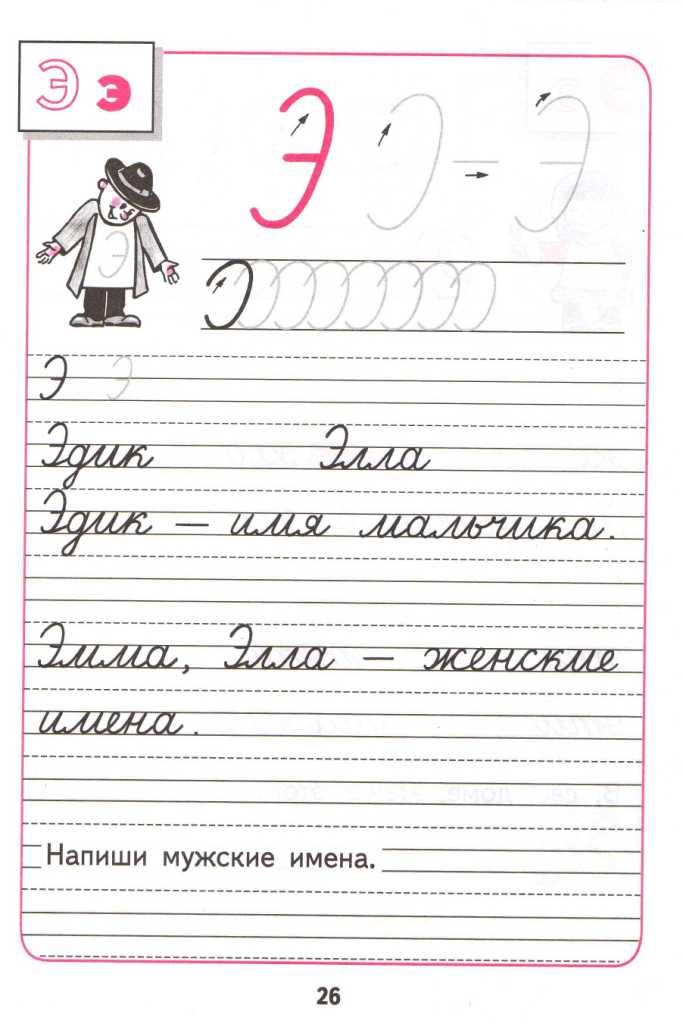 Э э
Э
Э
Э Э
Эдик Элла
Эдик — имя мальчика.
Эмма, Элла — женские
имена.
Напиши мужские имена.
26